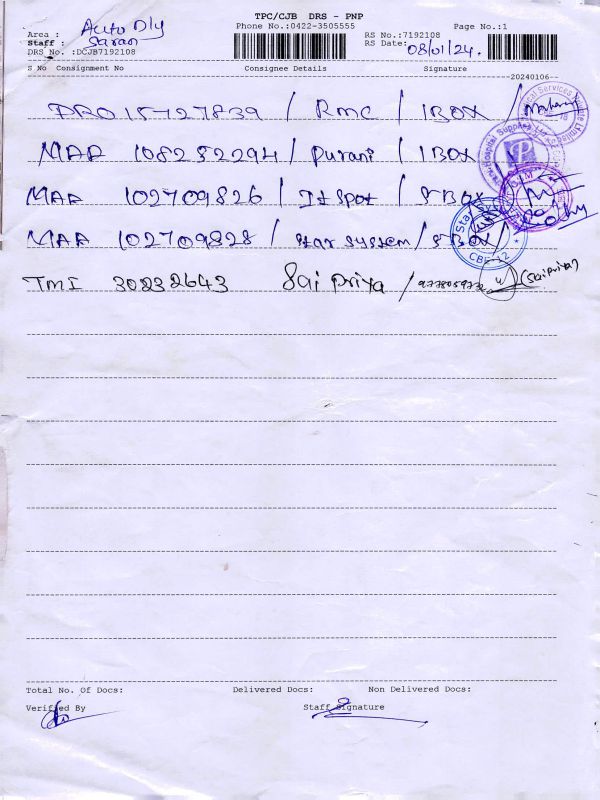 TPC/CJB DRS - PNP
Area : Auto Dly Phone No.:0422-3505555 Page No.:1
Staff : Saran RS No.:7192108
DRS No. :DCJB7192108 RS Date: 08/01/24.
S No Consignment No Consignee Details Signature
--20240106--
PRO15727839 / RMC / 1 BOX /
MAA 1082 / Purani / 1 BOX
MAA 102709826 / It Spot / 5 BOX
MAA 102709828 / Star System / 5 BOX
TMI 30232643 Sai Priya / (Sai Priya)
Total No. Of Docs: Delivered Docs: Non Delivered Docs:
Verified By Staff Signature